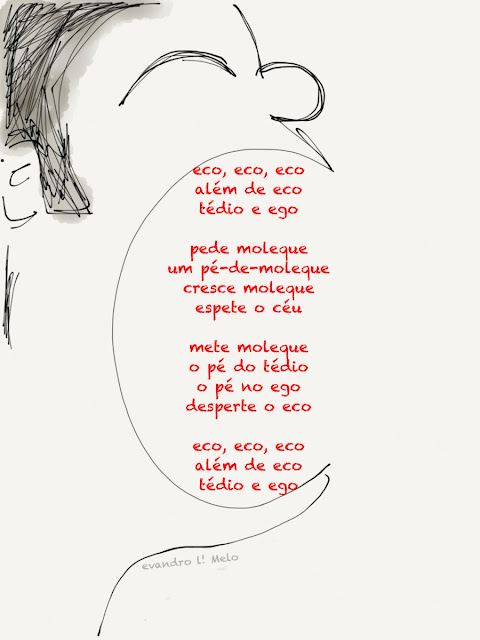 eco, eco, eco
além de eco
tédio e ego
pede moleque
um pé-de-moleque
cresce moleque
espete o céu
mete moleque
o pé do tédio
o pé no ego
desperte o eco
eco, eco, eco
além de eco
tédio e ego
evandro L! Melo